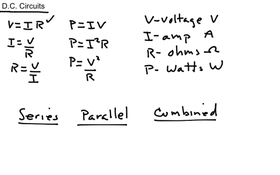 D.C. Circuits
V=IR✓ P=IV V-voltage V
I=V/R P=I²R I-amp A
R=V/I P=V²/R R-ohms Ω
P-Watts W
Series Parallel Combined